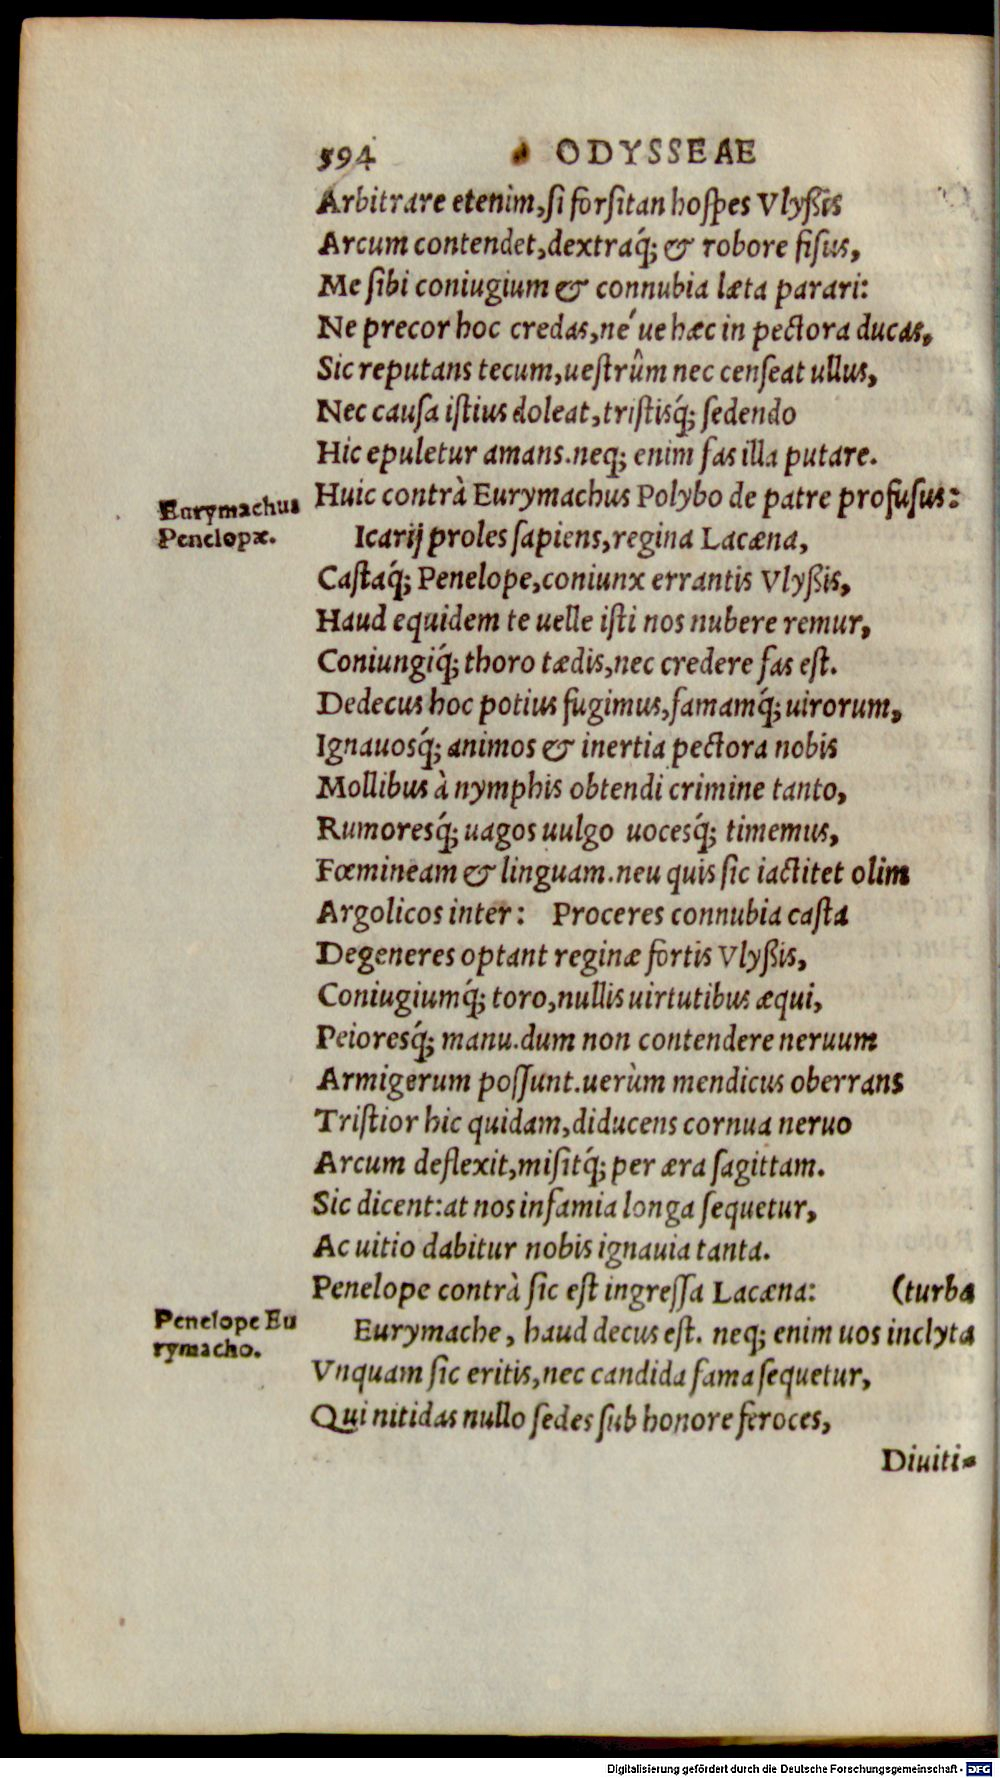 594 ODYSSEAE
Arbitrare etenim, si forsitan hospes Vlyßis
Arcum contendet, dextraq́; & robore fisus,
Me sibi coniugium & connubia læta parari:
Ne precor hoc credas, né ue hæc in pectora ducas,
Sic reputans tecum, uestrûm nec censeat ullus,
Nec causa istius doleat, tristisq́; sedendo
Hic epuletur amans. neq; enim fas illa putare.
Eurymachus
Penelopæ.
Huic contrà Eurymachus Polybo de patre profusus:
Icarij proles sapiens, regina Lacæna,
Castaq́; Penelope, coniunx errantis Vlyßis,
Haud equidem te uelle isti nos nubere remur,
Coniungiq́; thoro tædis, nec credere fas est.
Dedecus hoc potius fugimus, famamq́; uirorum,
Ignauosq́; animos & inertia pectora nobis
Mollibus à nymphis obtendi crimine tanto,
Rumoresq́; uagos uulgo uocesq́; timemus,
Fœmineam & linguam. neu quis sic iactitet olim
Argolicos inter: Proceres connubia casta
Degeneres optant reginæ fortis Vlyßis,
Coniugiumq́; toro, nullis uirtutibus æqui,
Peioresq́; manu. dum non contendere neruum
Armigerum possunt. uerùm mendicus oberrans
Tristior hic quidam, diducens cornua neruo
Arcum deflexit, misitq́; per æra sagittam.
Sic dicent: at nos infamia longa sequetur,
Ac uitio dabitur nobis ignauia tanta.
Penelope contrà sic est ingressa Lacæna: (turba
Penelope Eu
rymacho.
Eurymache, haud decus est. neq; enim uos inclyta
Vnquam sic eritis, nec candida fama sequetur,
Qui nitidas nullo sedes sub honore feroces,
Diuiti-
Digitalisierung gefördert durch die Deutsche Forschungsgemeinschaft - DFG